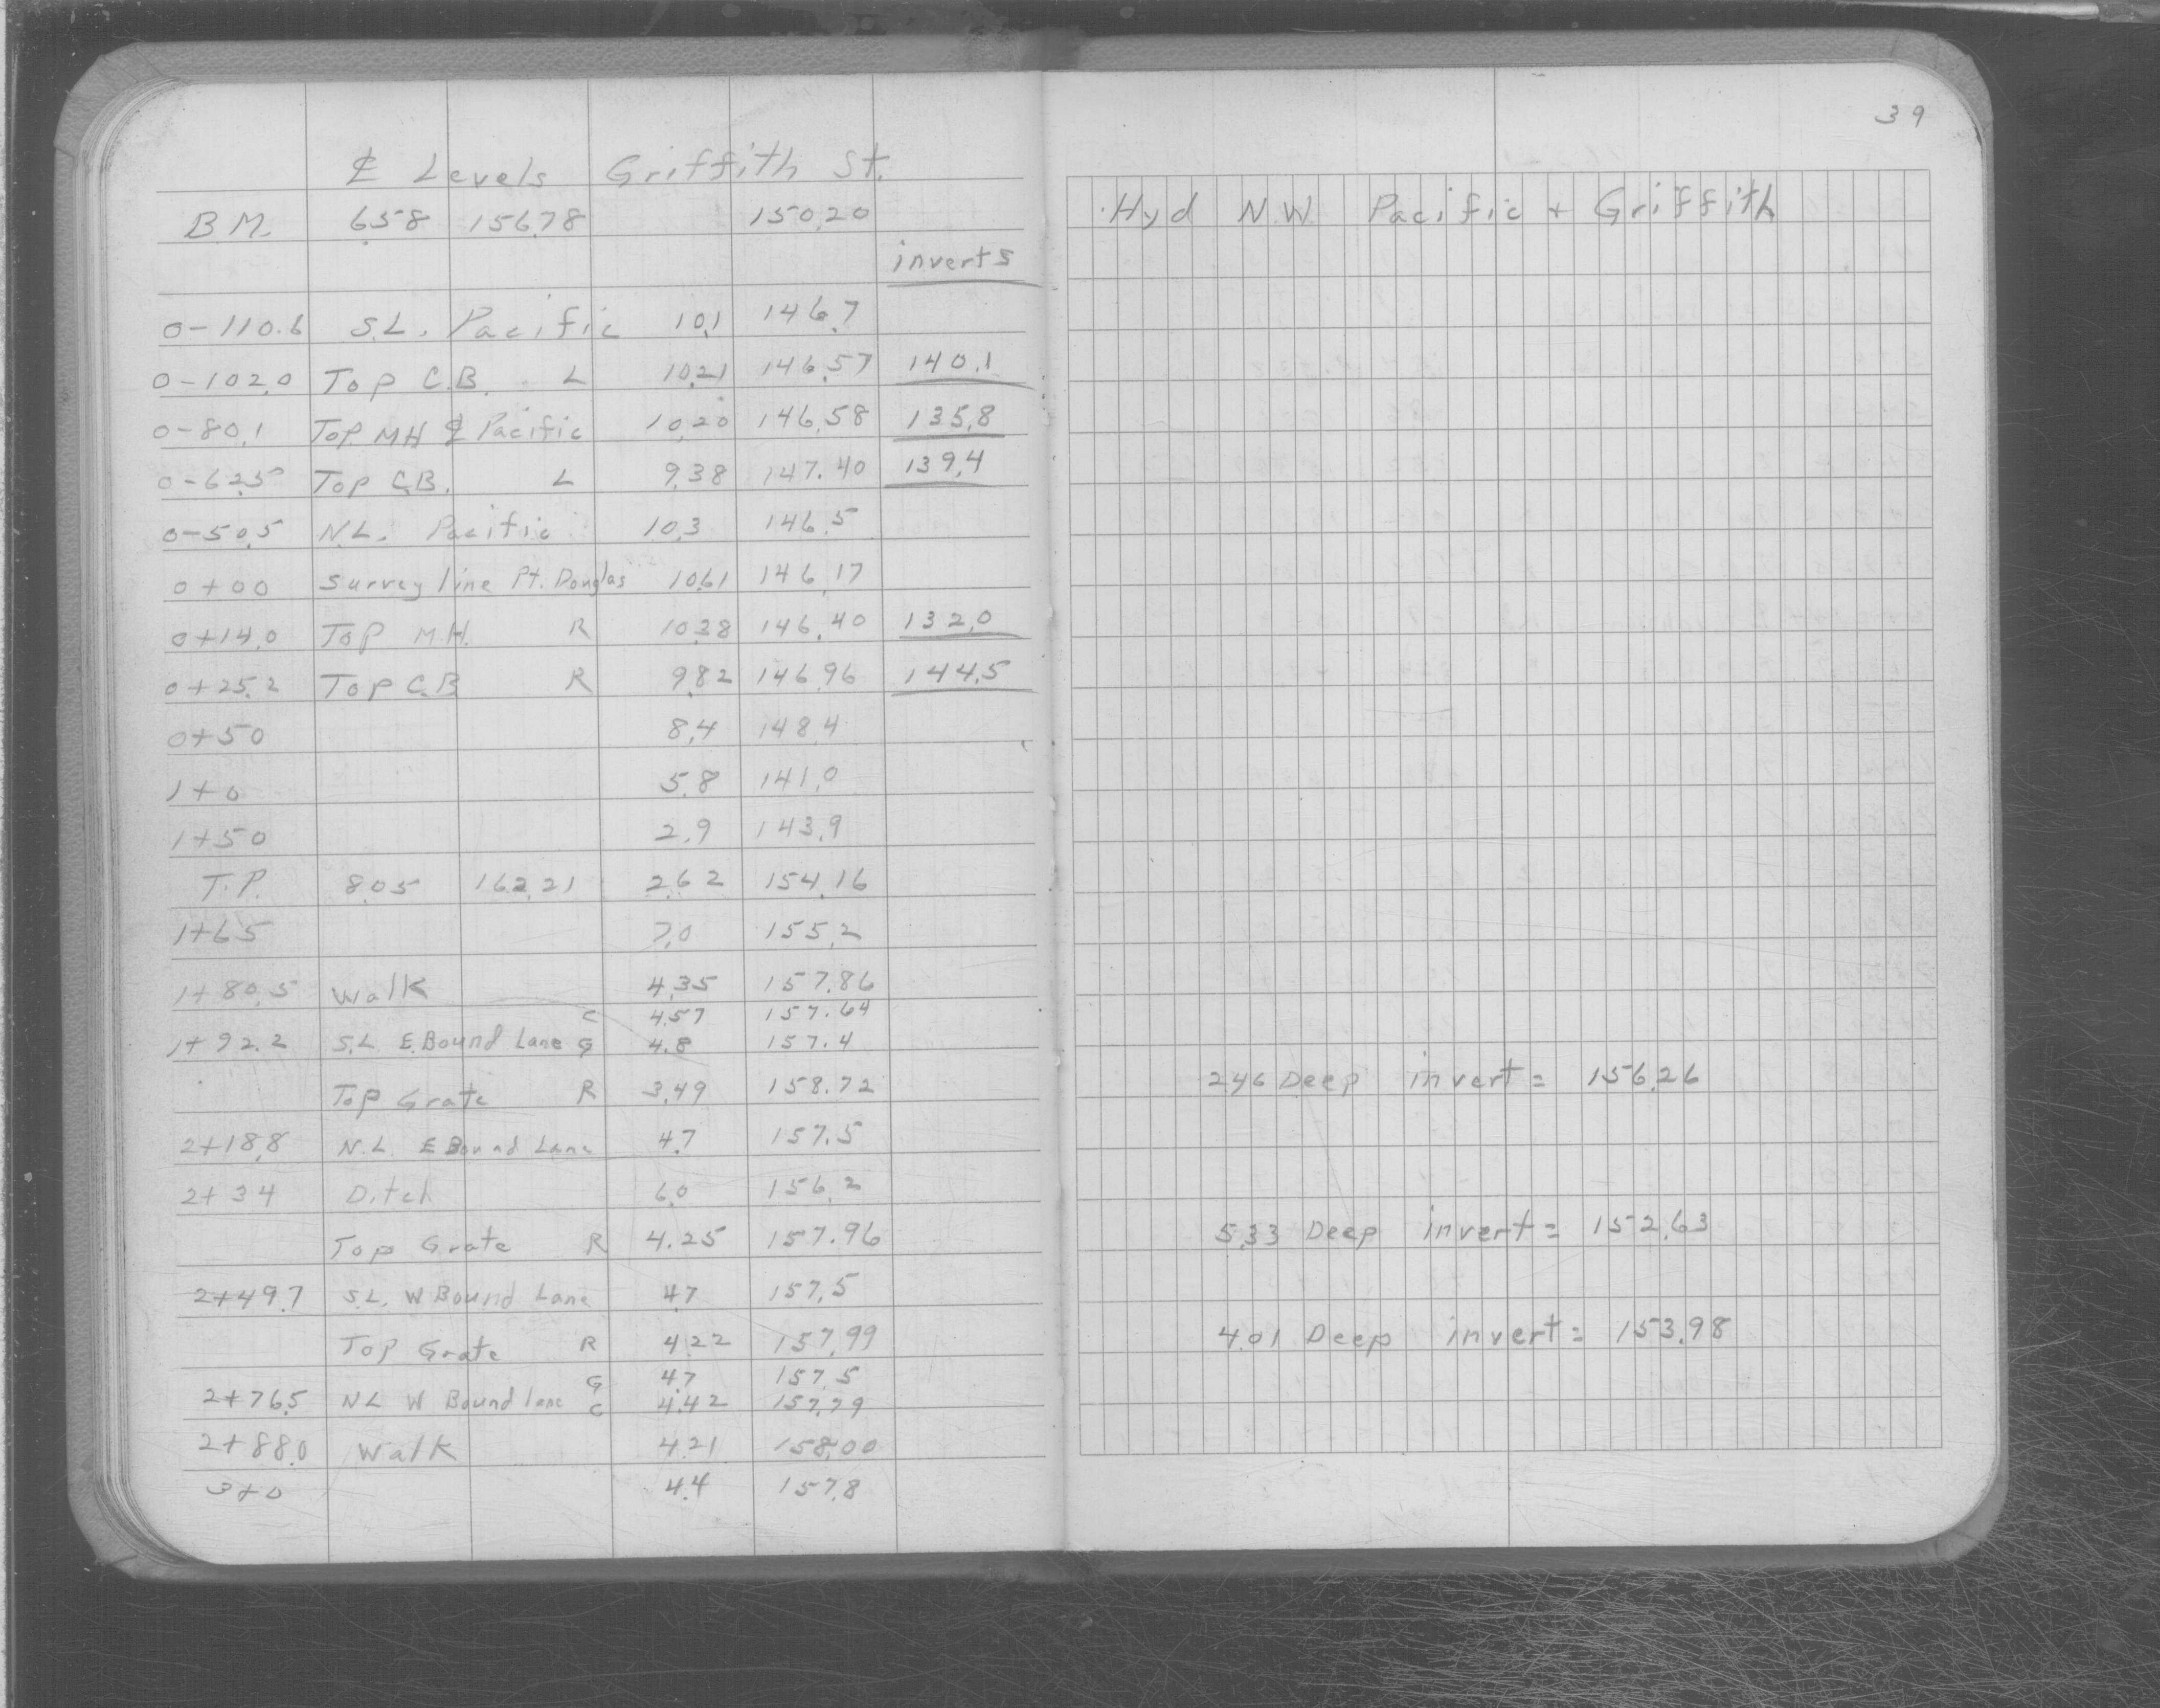 ℄ Levels Griffith St.
B.M. 6.58 156.78 150.20
inverts
0-110.6 S.L. Pacific 10.1 146.7
0-102.0 Top C.B. L 10.21 146.57 140.1
0-80.1 Top MH ℄ Pacific 10.20 146.58 135.8
0-62.5 Top C.B. L 9.38 147.40 139.4
0-50.5 N.L. Pacific 10.3 146.5
0+00 Survey line Pt. Douglas 10.61 146.17
0+14.0 Top M.H. R 10.38 146.40 132.0
0+25.2 Top C.B R 9.82 146.96 144.5
0+50 8.4 148.4
1+0 5.8 141.0
1+50 2.9 143.9
T.P. 8.05 162.21 2.62 154.16
1+65 7.0 155.2
1+80.5 Walk 4.35 157.86
C 4.57 157.64
1+92.2 S.L. E.Bound Lane G 4.8 157.4
Top Grate R 3.49 158.72
2+18.8 N.L. E Bound Lane 4.7 157.5
2+34 Ditch 6.0 156.2
Top Grate R 4.25 157.96
2+49.7 S.L. W Bound Lane 4.7 157.5
Top Grate R 4.22 157.99
G 4.7 157.5
2+76.5 NL W Bound lane C 4.42 157.79
2+88.0 Walk 4.21 158.00
3+0 4.4 157.8
39
Hyd N.W. Pacific + Griffith
2.46 Deep invert = 156.26
5.33 Deep invert = 152.63
4.01 Deep invert = 153.98